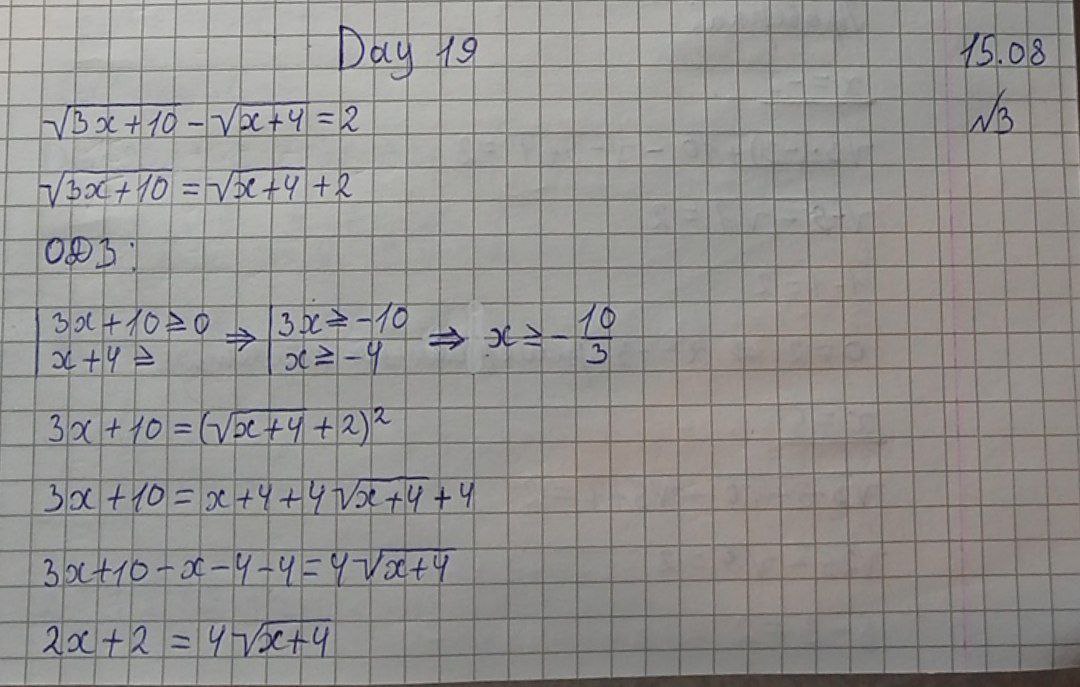 Day 19 15.08
√3x+10 - √x+4 = 2 √3
√3x+10 = √x+4 + 2
ОДЗ:
3x+10≥0 ⇒ 3x≥-10 ⇒ x≥-10/3
x+4≥ x≥-4
3x+10=(√x+4+2)²
3x+10=x+4+4√x+4+4
3x+10-x-4-4=4√x+4
2x+2=4√x+4